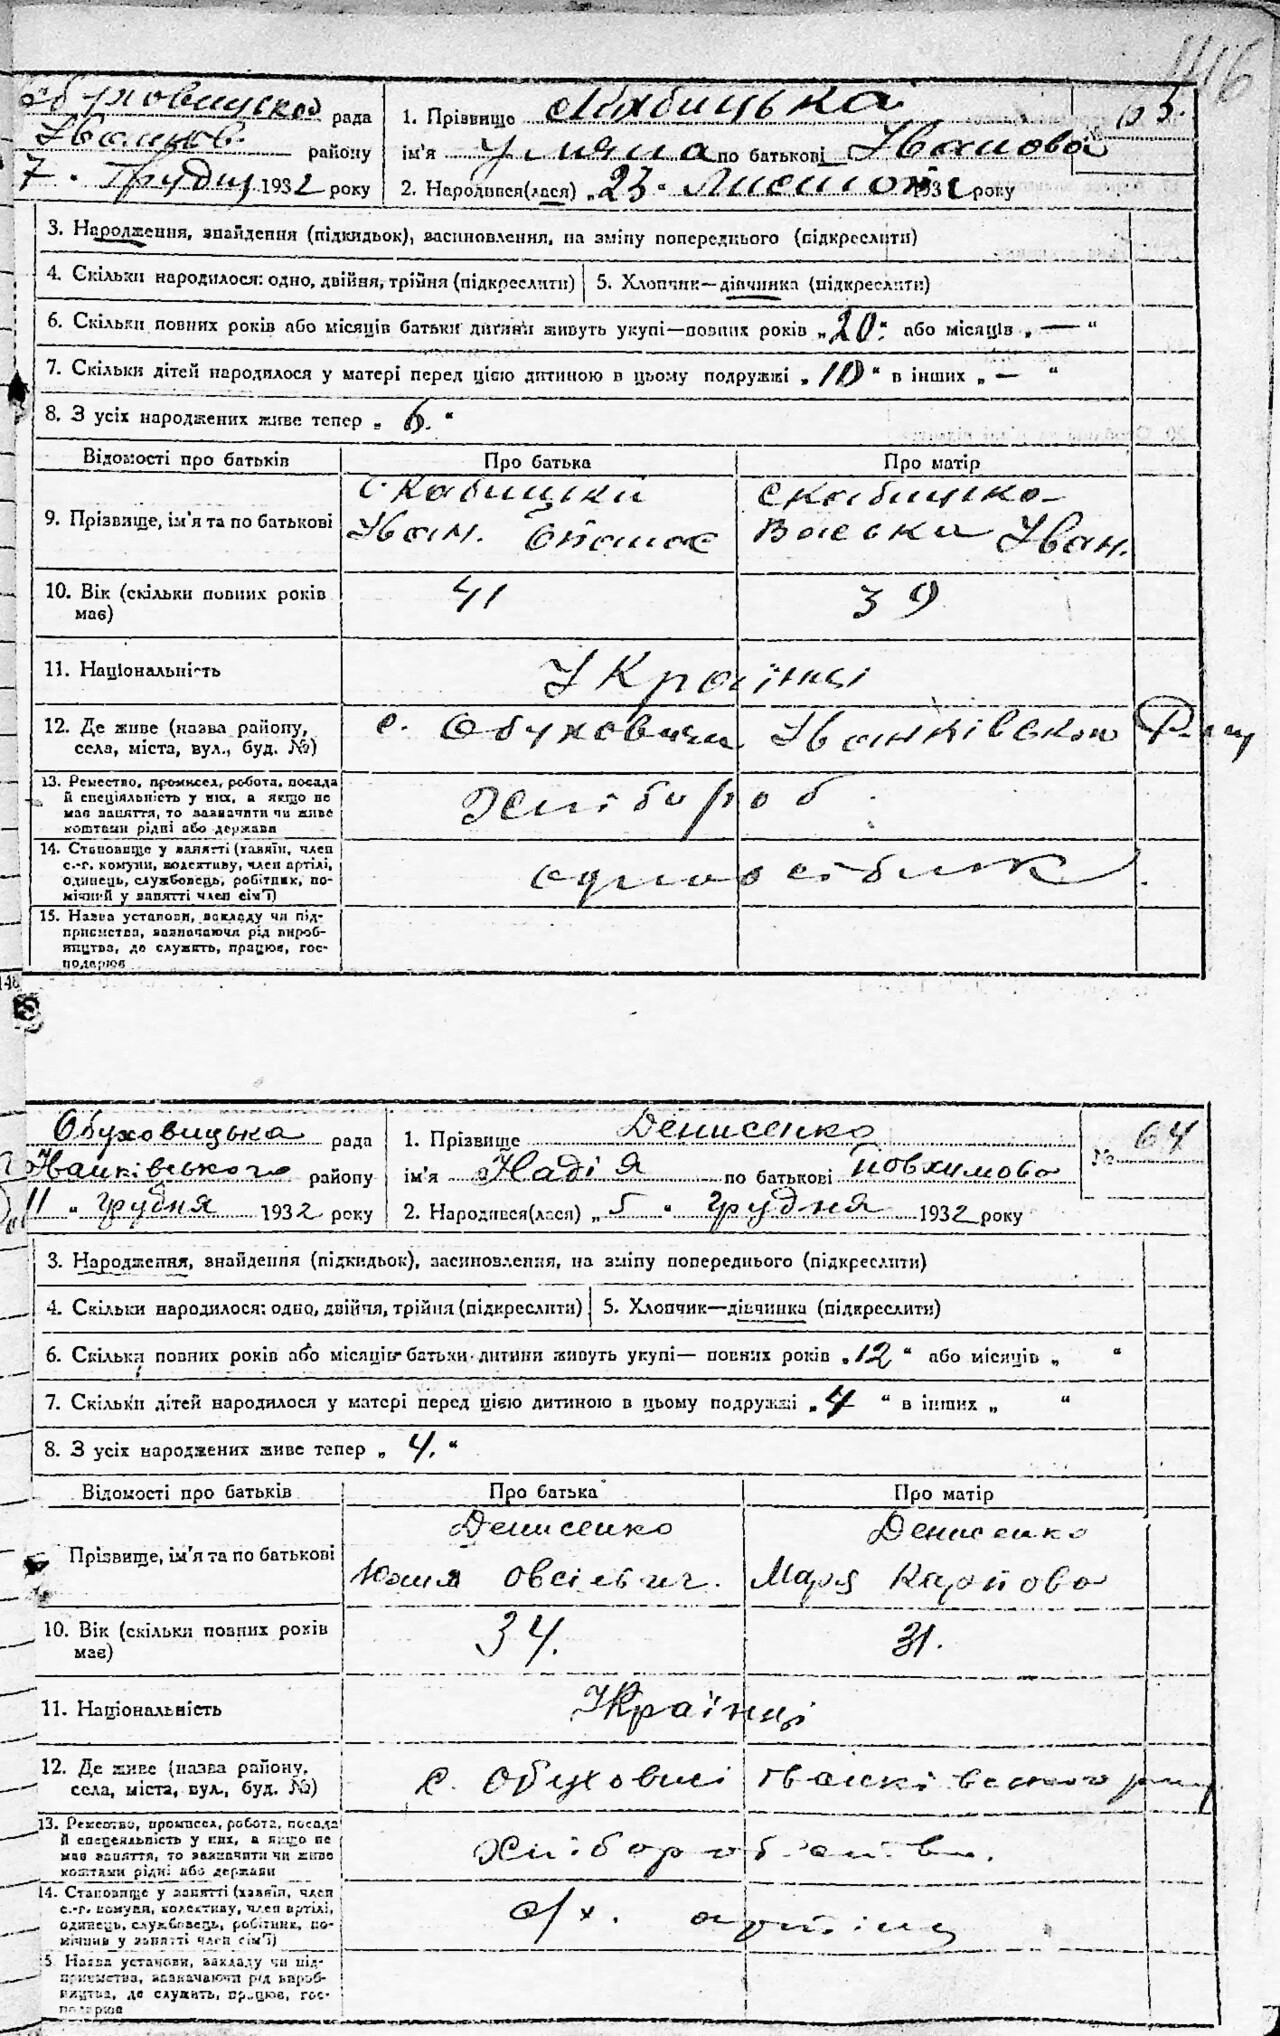 116
рада
району
7. Грудня 1932 року
1. Прізвище
ім'я Уляна по батькові Іванова
2. Народився(лася) „23. Листоп 1932 року
3. Народження, знайдення (підкидьок), засиновлення, на зміну попереднього (підкреслити)
4. Скільки народилося: одно, двійня, трійня (підкреслити)
5. Хлопчик—дівчинка (підкреслити)
6. Скільки повних років або місяців батьки дитини живуть укупі—повних років „20“ або місяців „—“
7. Скільки дітей народилося у матері перед цією дитиною в цьому подружжі „10“ в інших „—“
8. З усіх народжених живе тепер „6.“
Відомості про батьків
Про батька
Про матір
9. Прізвище, ім'я та по батькові
Іван.
Іван.
10. Вік (скільки повних років має)
41
39
11. Національність
Українці
12. Де живе (назва району, села, міста, вул., буд. №)
с. Обуховичи Іванківском Р-ну
13. Ремество, промисел, робота, посада
й спеціяльність у них, а якщо не
має заняття, то зазначити чи живе
коштами рідні або держави
Хлібороб
14. Становище у занятті (хазяїн, член
с.-г. комуни, колективу, член артілі,
одинець, службовець, робітник, по-
мічний у занятті член сім'ї)
одноосібник
15. Назва установи, закладу чи під-
приємства, зазначаючи рід вироб-
ництва, де служить, працює, гос-
подарює
Обуховицька рада
Іванківського району
11 „ грудня 1932 року
1. Прізвище Денисенко
ім'я Надія по батькові Йовхимова
2. Народився(лася) „5“ грудня 1932 року
№ 64
3. Народження, знайдення (підкидьок), засиновлення, на зміну попереднього (підкреслити)
4. Скільки народилося: одно, двійня, трійня (підкреслити)
5. Хлопчик—дівчинка (підкреслити)
6. Скільки повних років або місяців батьки дитини живуть укупі— повних років „12“ або місяців „ “
7. Скільки дітей народилося у матері перед цією дитиною в цьому подружжі „4 “ в інших „ “
8. З усіх народжених живе тепер „4.“
Відомості про батьків
Про батька
Про матір
Прізвище, ім'я та по батькові
Денисенко
Денисенко
Марія Карпова
10. Вік (скільки повних років має)
34.
31.
11. Національність
Українці
12. Де живе (назва району, села, міста, вул., буд. №)
с. Обуховичі Іванківського р-ну
13. Ремество, промисел, робота, посада
й спеціяльність у них, а якщо не
має заняття, то зазначити чи живе
коштами рідні або держави
14. Становище у занятті (хазяїн, член
с.-г. комуни, колективу, член артілі,
одинець, службовець, робітник, по-
мічний у занятті член сім'ї)
с/х. артіли
5. Назва установи, закладу чи під-
приємства, зазначаючи рід вироб-
ництва, де служить, працює, гос-
подарює